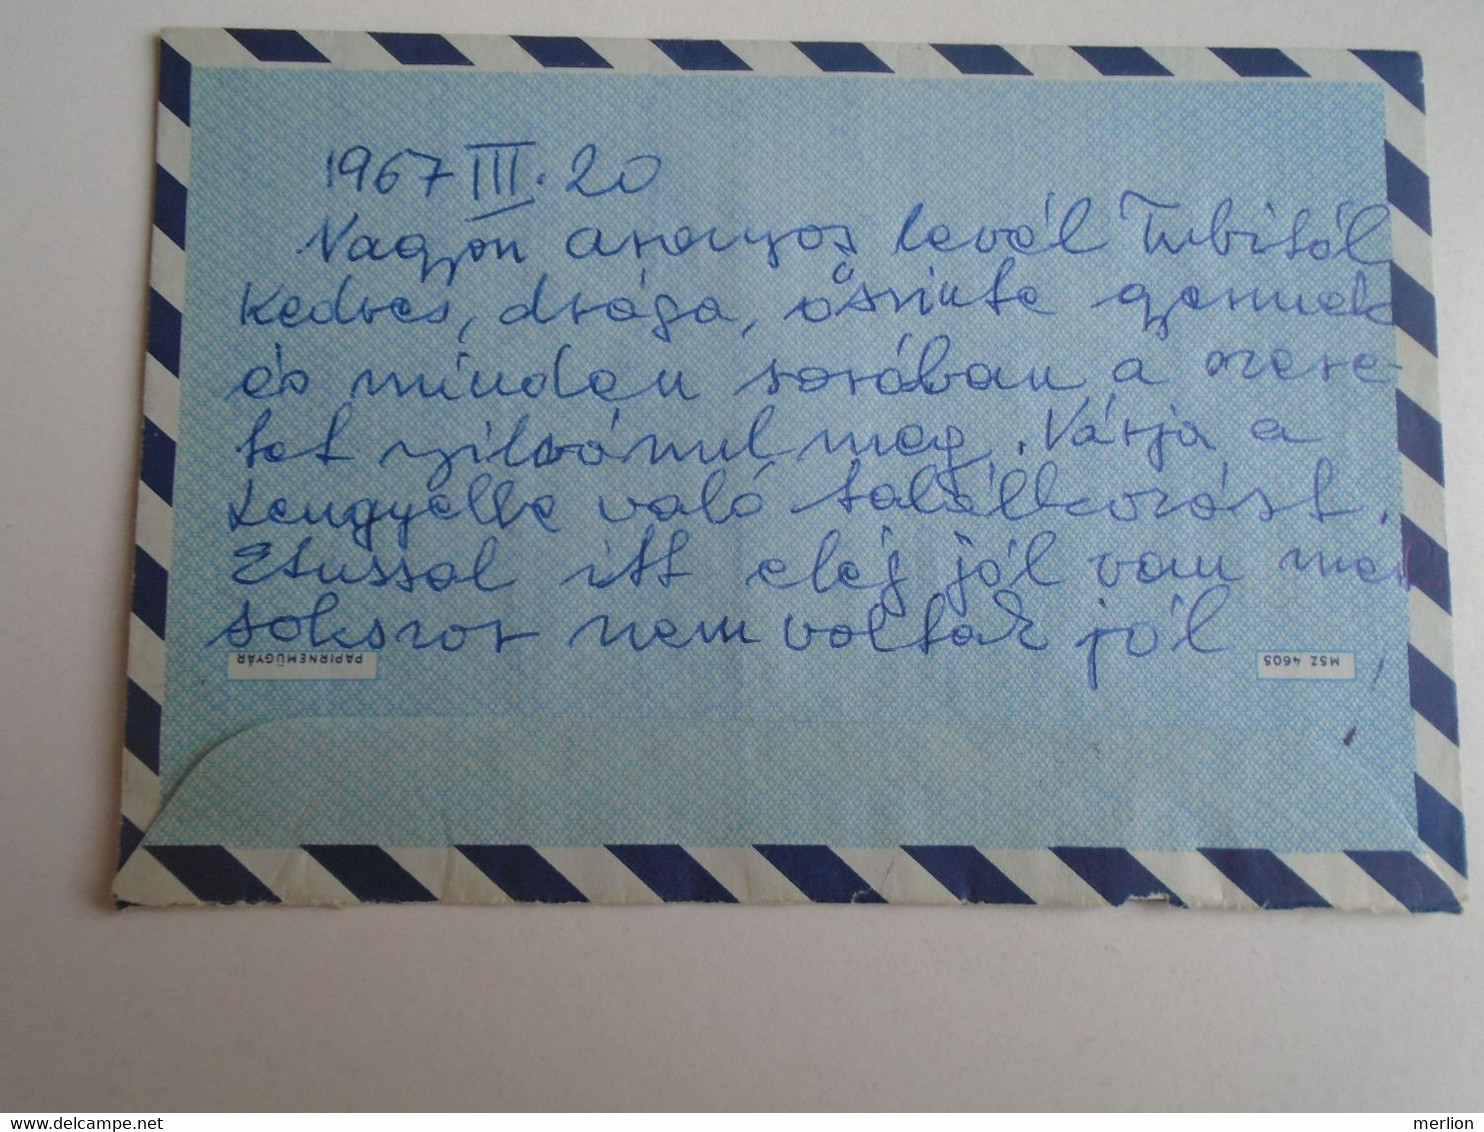 1967 III. 20
Nagyon aranyos levél Tubitól
kedves, drága, őszinte gyermek
és minden sorában a szere-
tet nyilvánul meg. Várja a
Lengyelbe való találkozást.
Etussal itt elég jól van mer
sokszor nem voltak jól
PAPIRNEMŰGYÁR
MSZ 4605
merlion